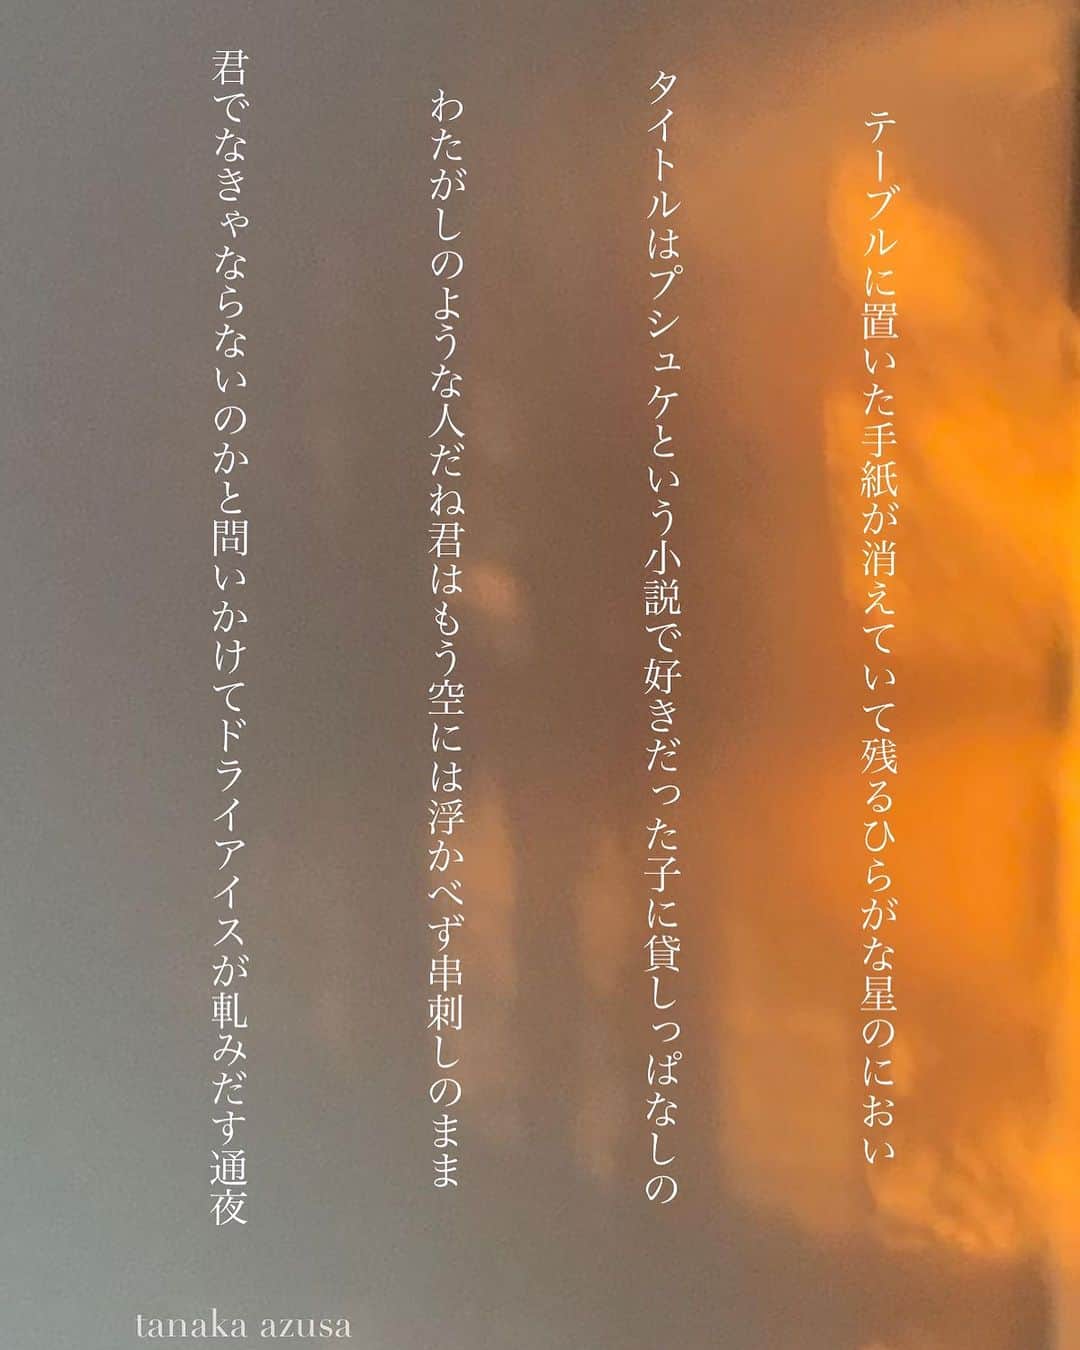 テーブルに置いた手紙が消えていて残るひらがな星のにおい
タイトルはプシュケという小説で好きだった子に貸しっぱなしの
わたがしのような人だね君はもう空には浮かべず串刺しのまま
君でなきゃならないのかと問いかけてドライアイスが軋みだす通夜
tanaka azusa